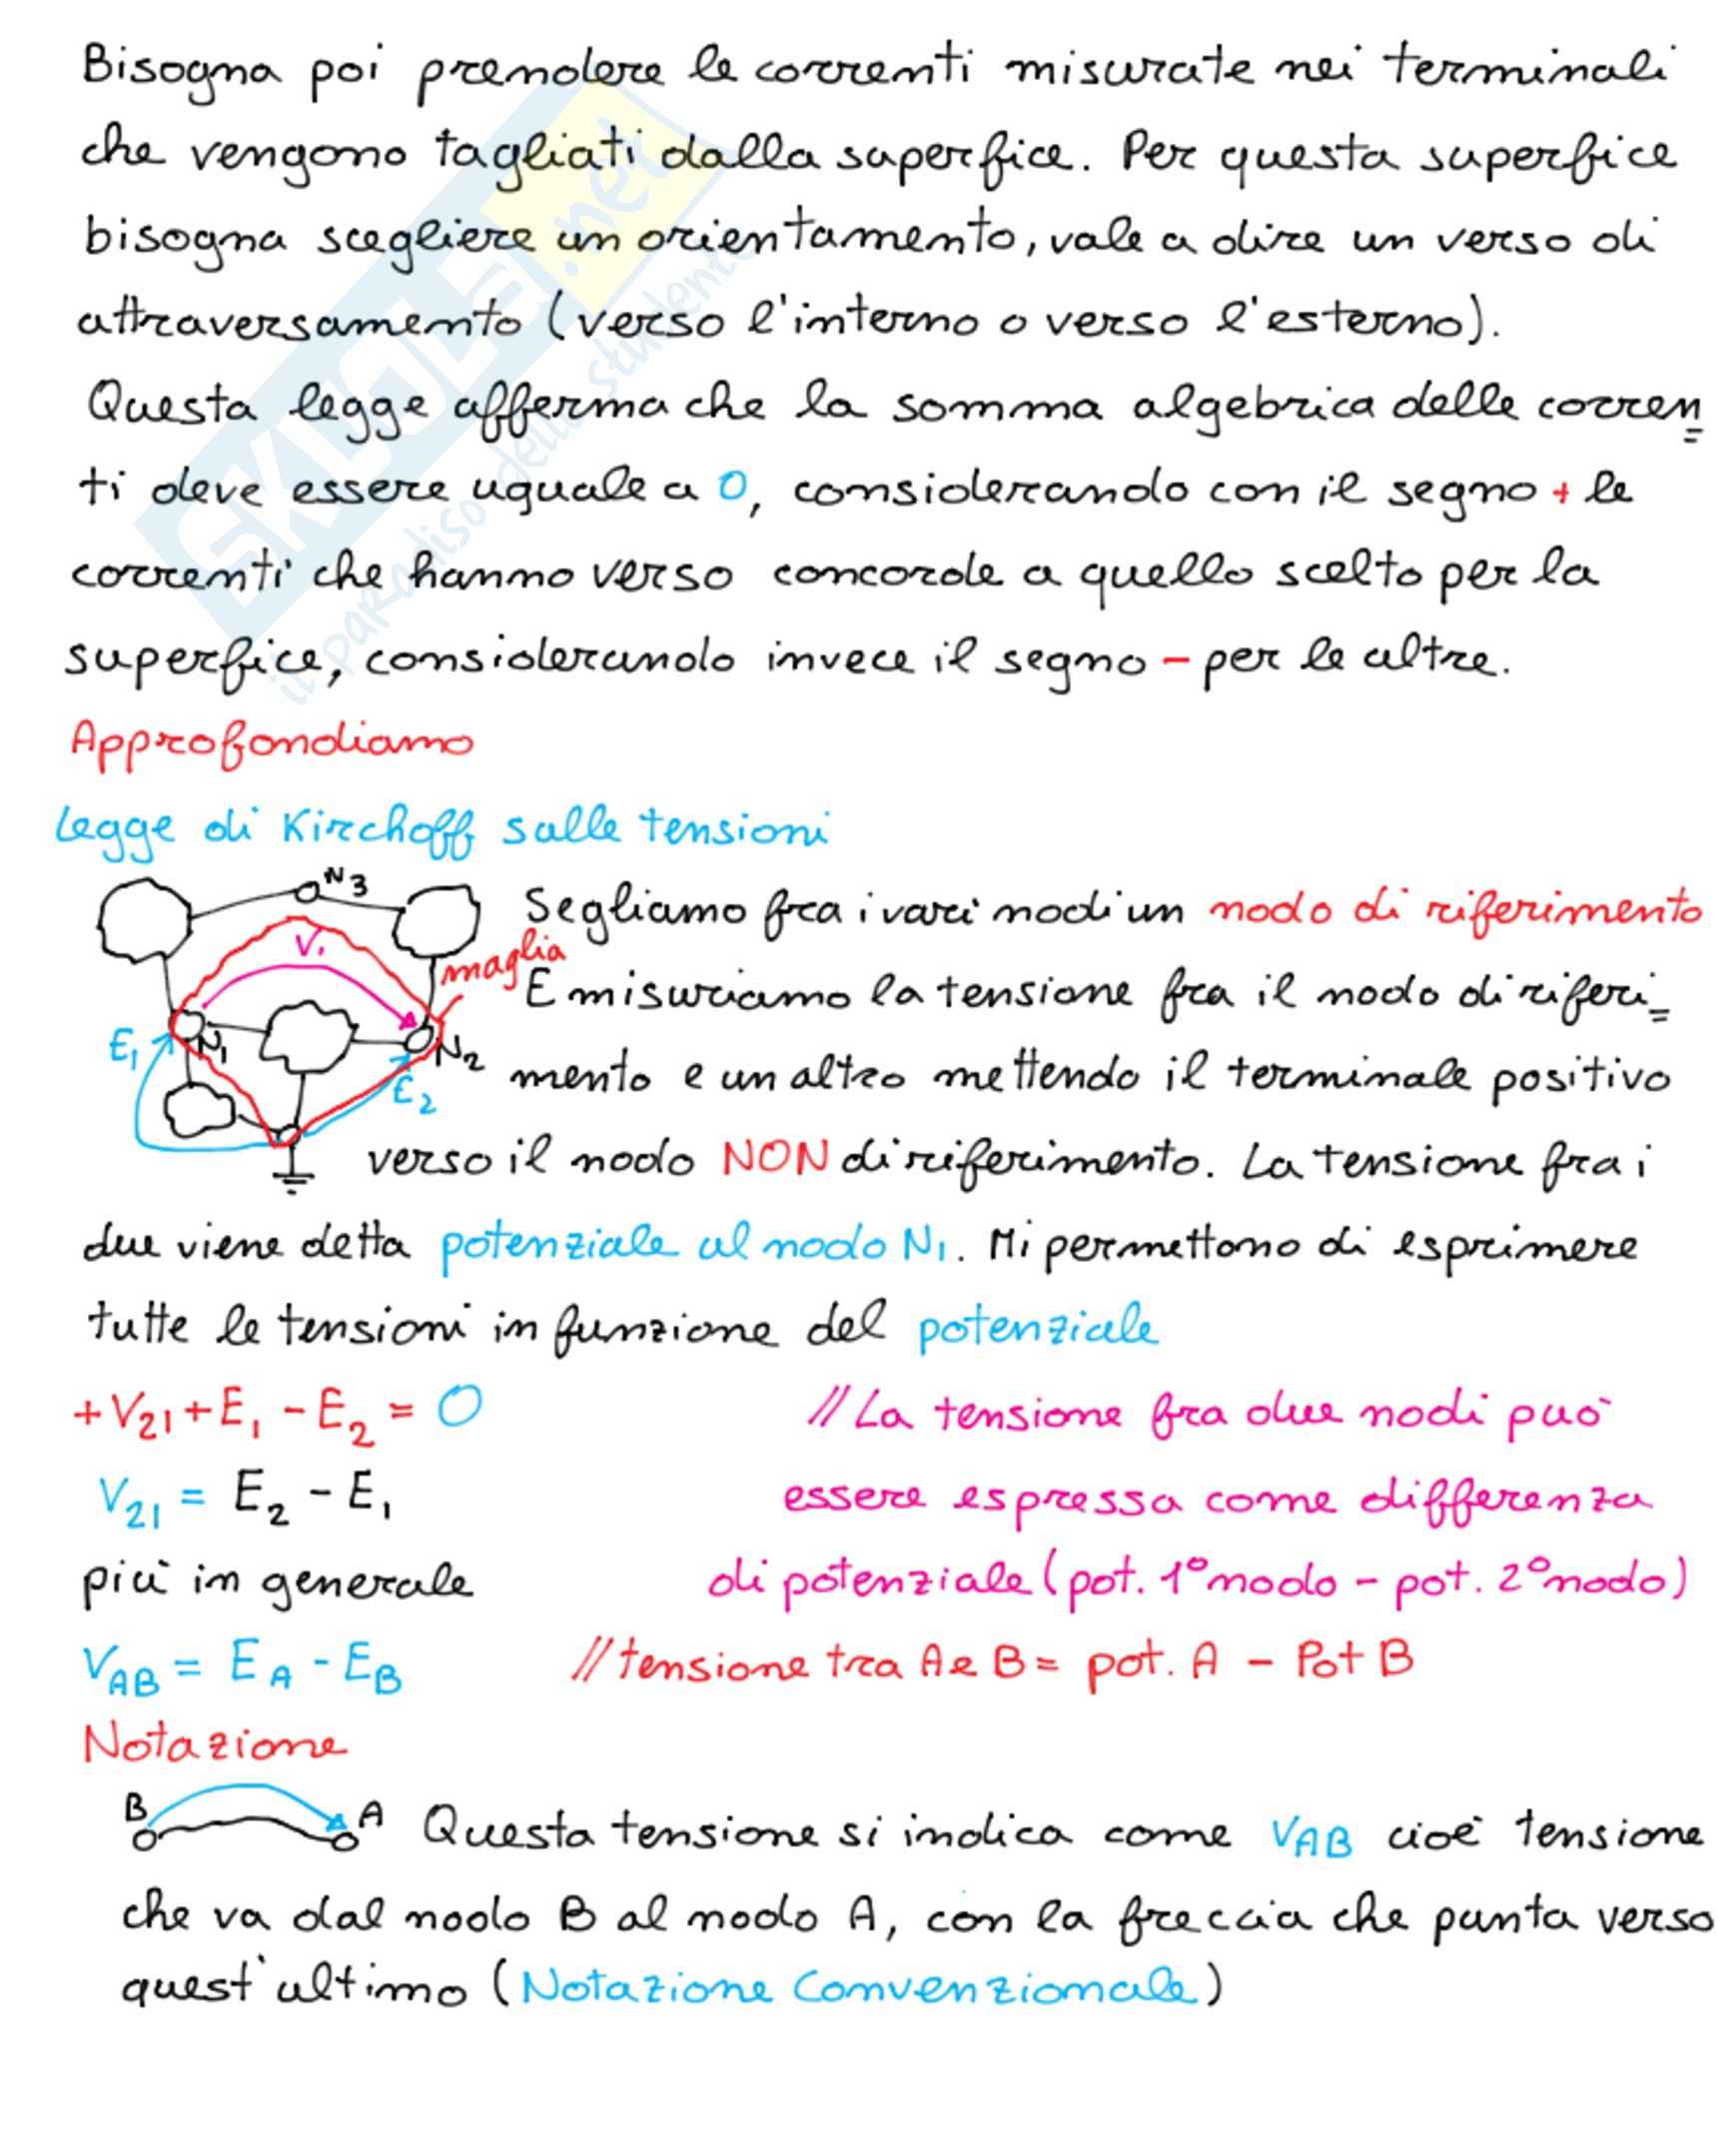 Bisogna poi prendere le correnti misurate nei terminali
che vengono tagliati dalla superfice. Per questa superfice
bisogna scegliere un orientamento, vale a dire un verso di
attraversamento (verso l'interno o verso l'esterno).
Questa legge afferma che la somma algebrica delle corren=
ti deve essere uguale a 0, considerando con il segno + le
correnti che hanno verso concorde a quello scelto per la
superfice, considerando invece il segno - per le altre.
SKUOLA.net
il paradiso dello studente
Approfondiamo
Legge di Kirchoff sulle tensioni
N3
Segliamo fra i vari nodi un nodo di riferimento
V1
maglia
E misuriamo la tensione fra il nodo di riferi=
E1
N1
N2
E2
mento e un altro mettendo il terminale positivo
verso il nodo NON di riferimento. La tensione fra i
due viene detta potenziale al nodo N1. Mi permettono di esprimere
tutte le tensioni in funzione del potenziale
+V21+E1-E2=0 //La tensione fra due nodi può
V21 = E2 - E1 essere espressa come differenza
più in generale di potenziale (pot. 1° nodo - pot. 2° nodo)
VAB = EA - EB //tensione tra A e B = pot. A - Pot B
Notazione
B A Questa tensione si indica come VAB cioè tensione
che va dal nodo B al nodo A, con la freccia che punta verso
quest'ultimo (Notazione Convenzionale)